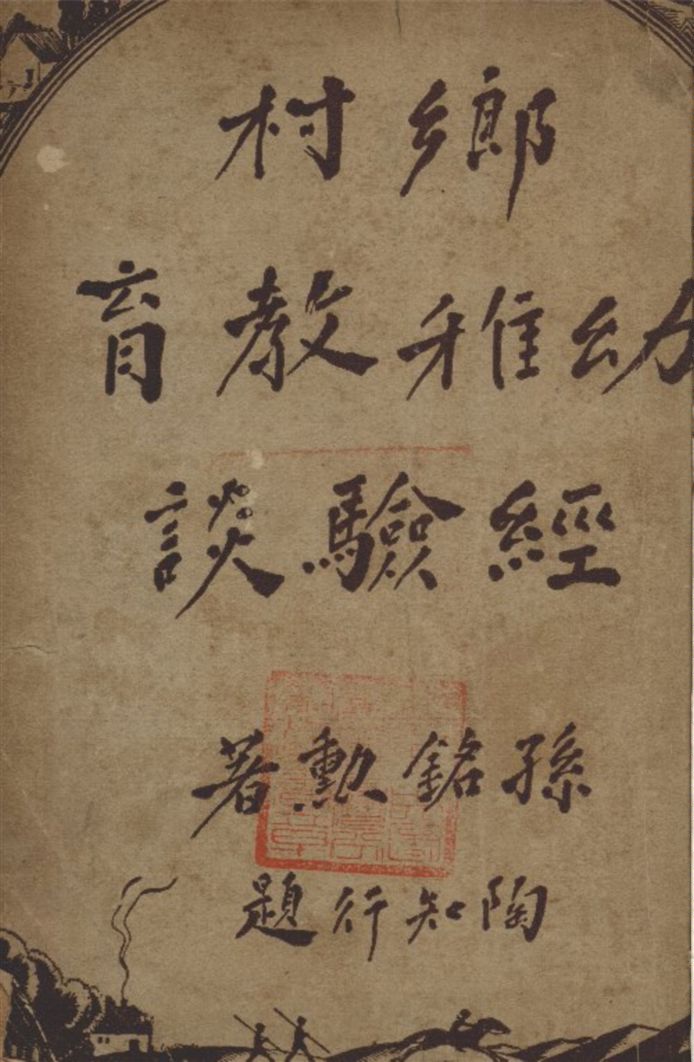 鄉村
幼稚教育
經驗談
孫銘勳著
陶知行題